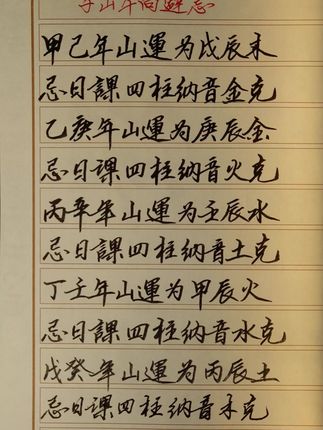 子山午向避忌
甲己年山運为戊辰木
忌日課四柱纳音金克
乙庚年山運为庚辰金
忌日課四柱纳音火克
丙辛年山運为壬辰水
忌日課四柱纳音土克
丁壬年山運为甲辰火
忌日課四柱纳音水克
戊癸年山運为丙辰土
忌日課四柱纳音木克